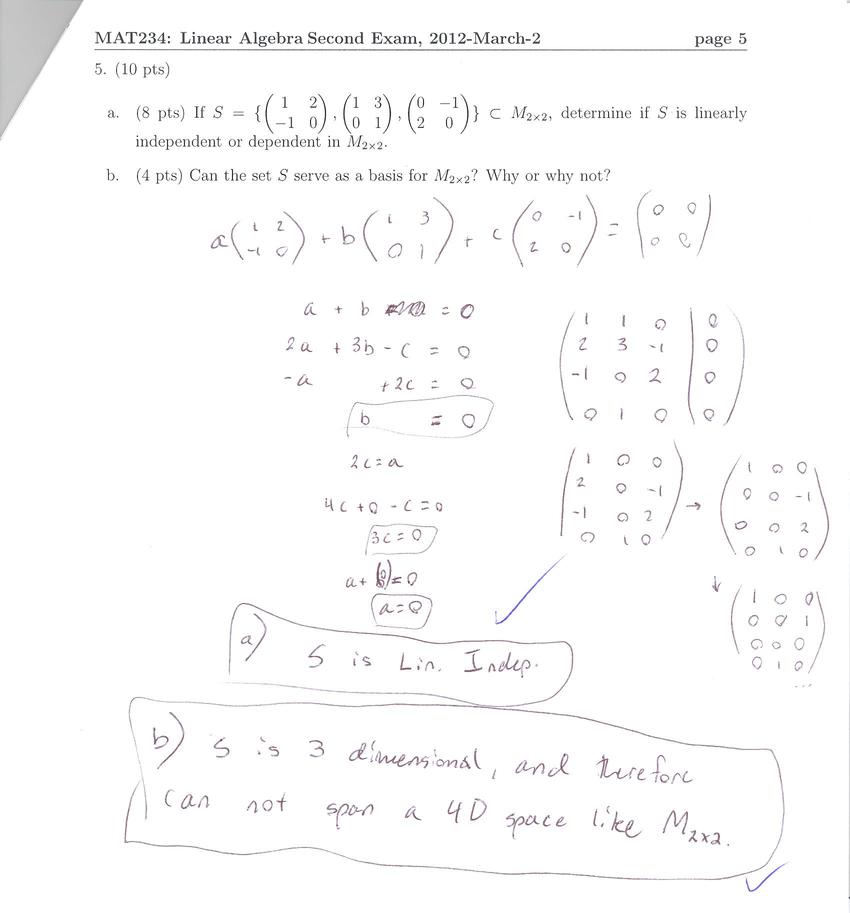 MAT234: Linear Algebra Second Exam, 2012-March-2 page 5
5. (10 pts)
a. (8 pts) If S = {(1 2; -1 0), (1 3; 0 1), (0 -1; 2 0)} ⊂ M₂ₓ₂, determine if S is linearly
independent or dependent in M₂ₓ₂.
b. (4 pts) Can the set S serve as a basis for M₂ₓ₂? Why or why not?
a(1 2; -1 0) + b(1 3; 0 1) + c(0 -1; 2 0) = (0 0; 0 0)
a + b = 0
2a + 3b - c = 0
-a +2c = 0
b = 0
2c = a
4c + 0 - c = 0
3c = 0
a + b = 0
a = 0
(1 1 0 | 0
2 3 -1 | 0
-1 0 2 | 0
0 1 0 | 0)
(1 0 0
2 0 -1
-1 0 2
0 1 0)
→
(1 0 0
0 0 -1
0 0 2
0 1 0)
↓
(1 0 0
0 0 1
0 0 0
0 1 0)
...
a) S is Lin. Indep.
b) S is 3 dimensional, and therefore
can not span a 4D space like M₂ₓ₂.